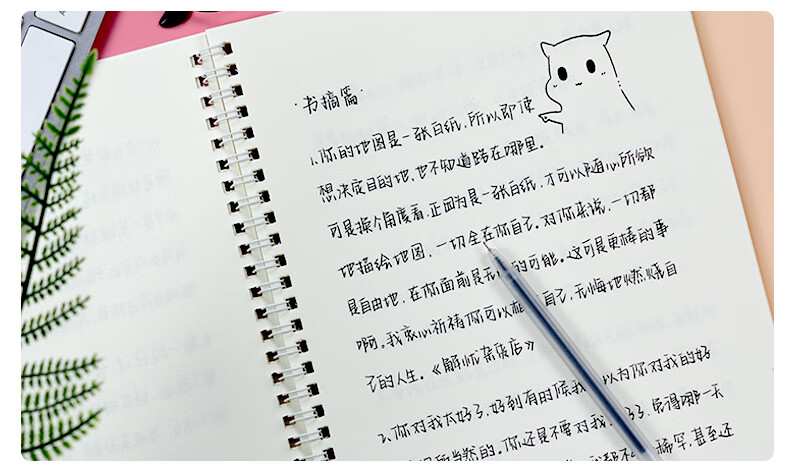 ·书摘篇·
1、你的地图是一张白纸，所以即使
想决定目的地，也不知道路在哪里。
可是换个角度看，正因为是一张白纸，才可以随心所欲
地描绘地图，一切全在你自己。对你来说，一切都
是自由地，在你面前是无的可能。这可是更棒的事
啊。我衷心祈祷你可以相自己，无悔地燃烧自
己的人生。《解忧杂货店》
2、你对我太好了，好到有时候我以为你对我的好
所当然的。你还是不要对我了，免得哪一天
稀罕，甚至还